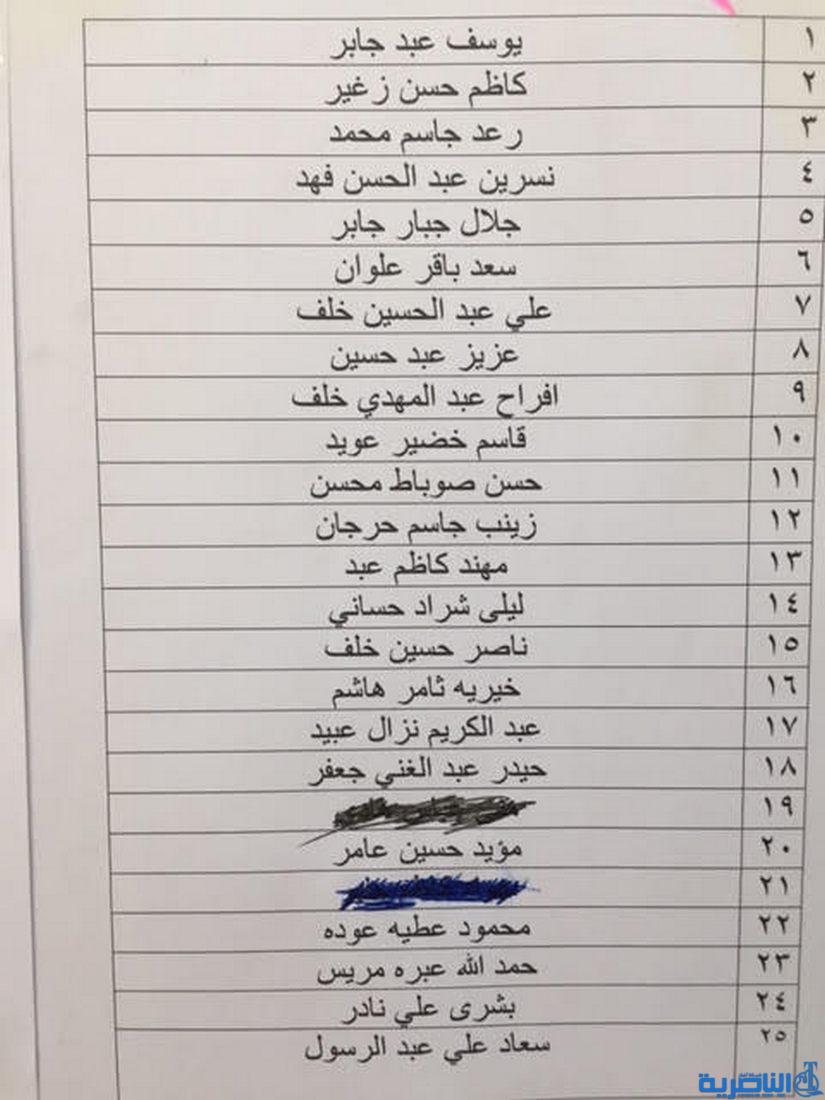 ١ يوسف عبد جابر
٢ كاظم حسن زغير
٣ رعد جاسم محمد
٤ نسرين عبد الحسن فهد
٥ جلال جبار جابر
٦ سعد باقر علوان
٧ علي عبد الحسين خلف
٨ عزيز عبد حسين
٩ افراح عبد المهدي خلف
١٠ قاسم خضير عويد
١١ حسن صوباط محسن
١٢ زينب جاسم حرجان
١٣ مهند كاظم عبد
١٤ ليلى شراد حساني
١٥ ناصر حسين خلف
١٦ خيريه ثامر هاشم
١٧ عبد الكريم نزال عبيد
١٨ حيدر عبد الغني جعفر
١٩
٢٠ مؤيد حسين عامر
٢١
٢٢ محمود عطيه عوده
٢٣ حمد الله عبره مريس
٢٤ بشرى علي نادر
٢٥ سعاد علي عبد الرسول
الناصرية